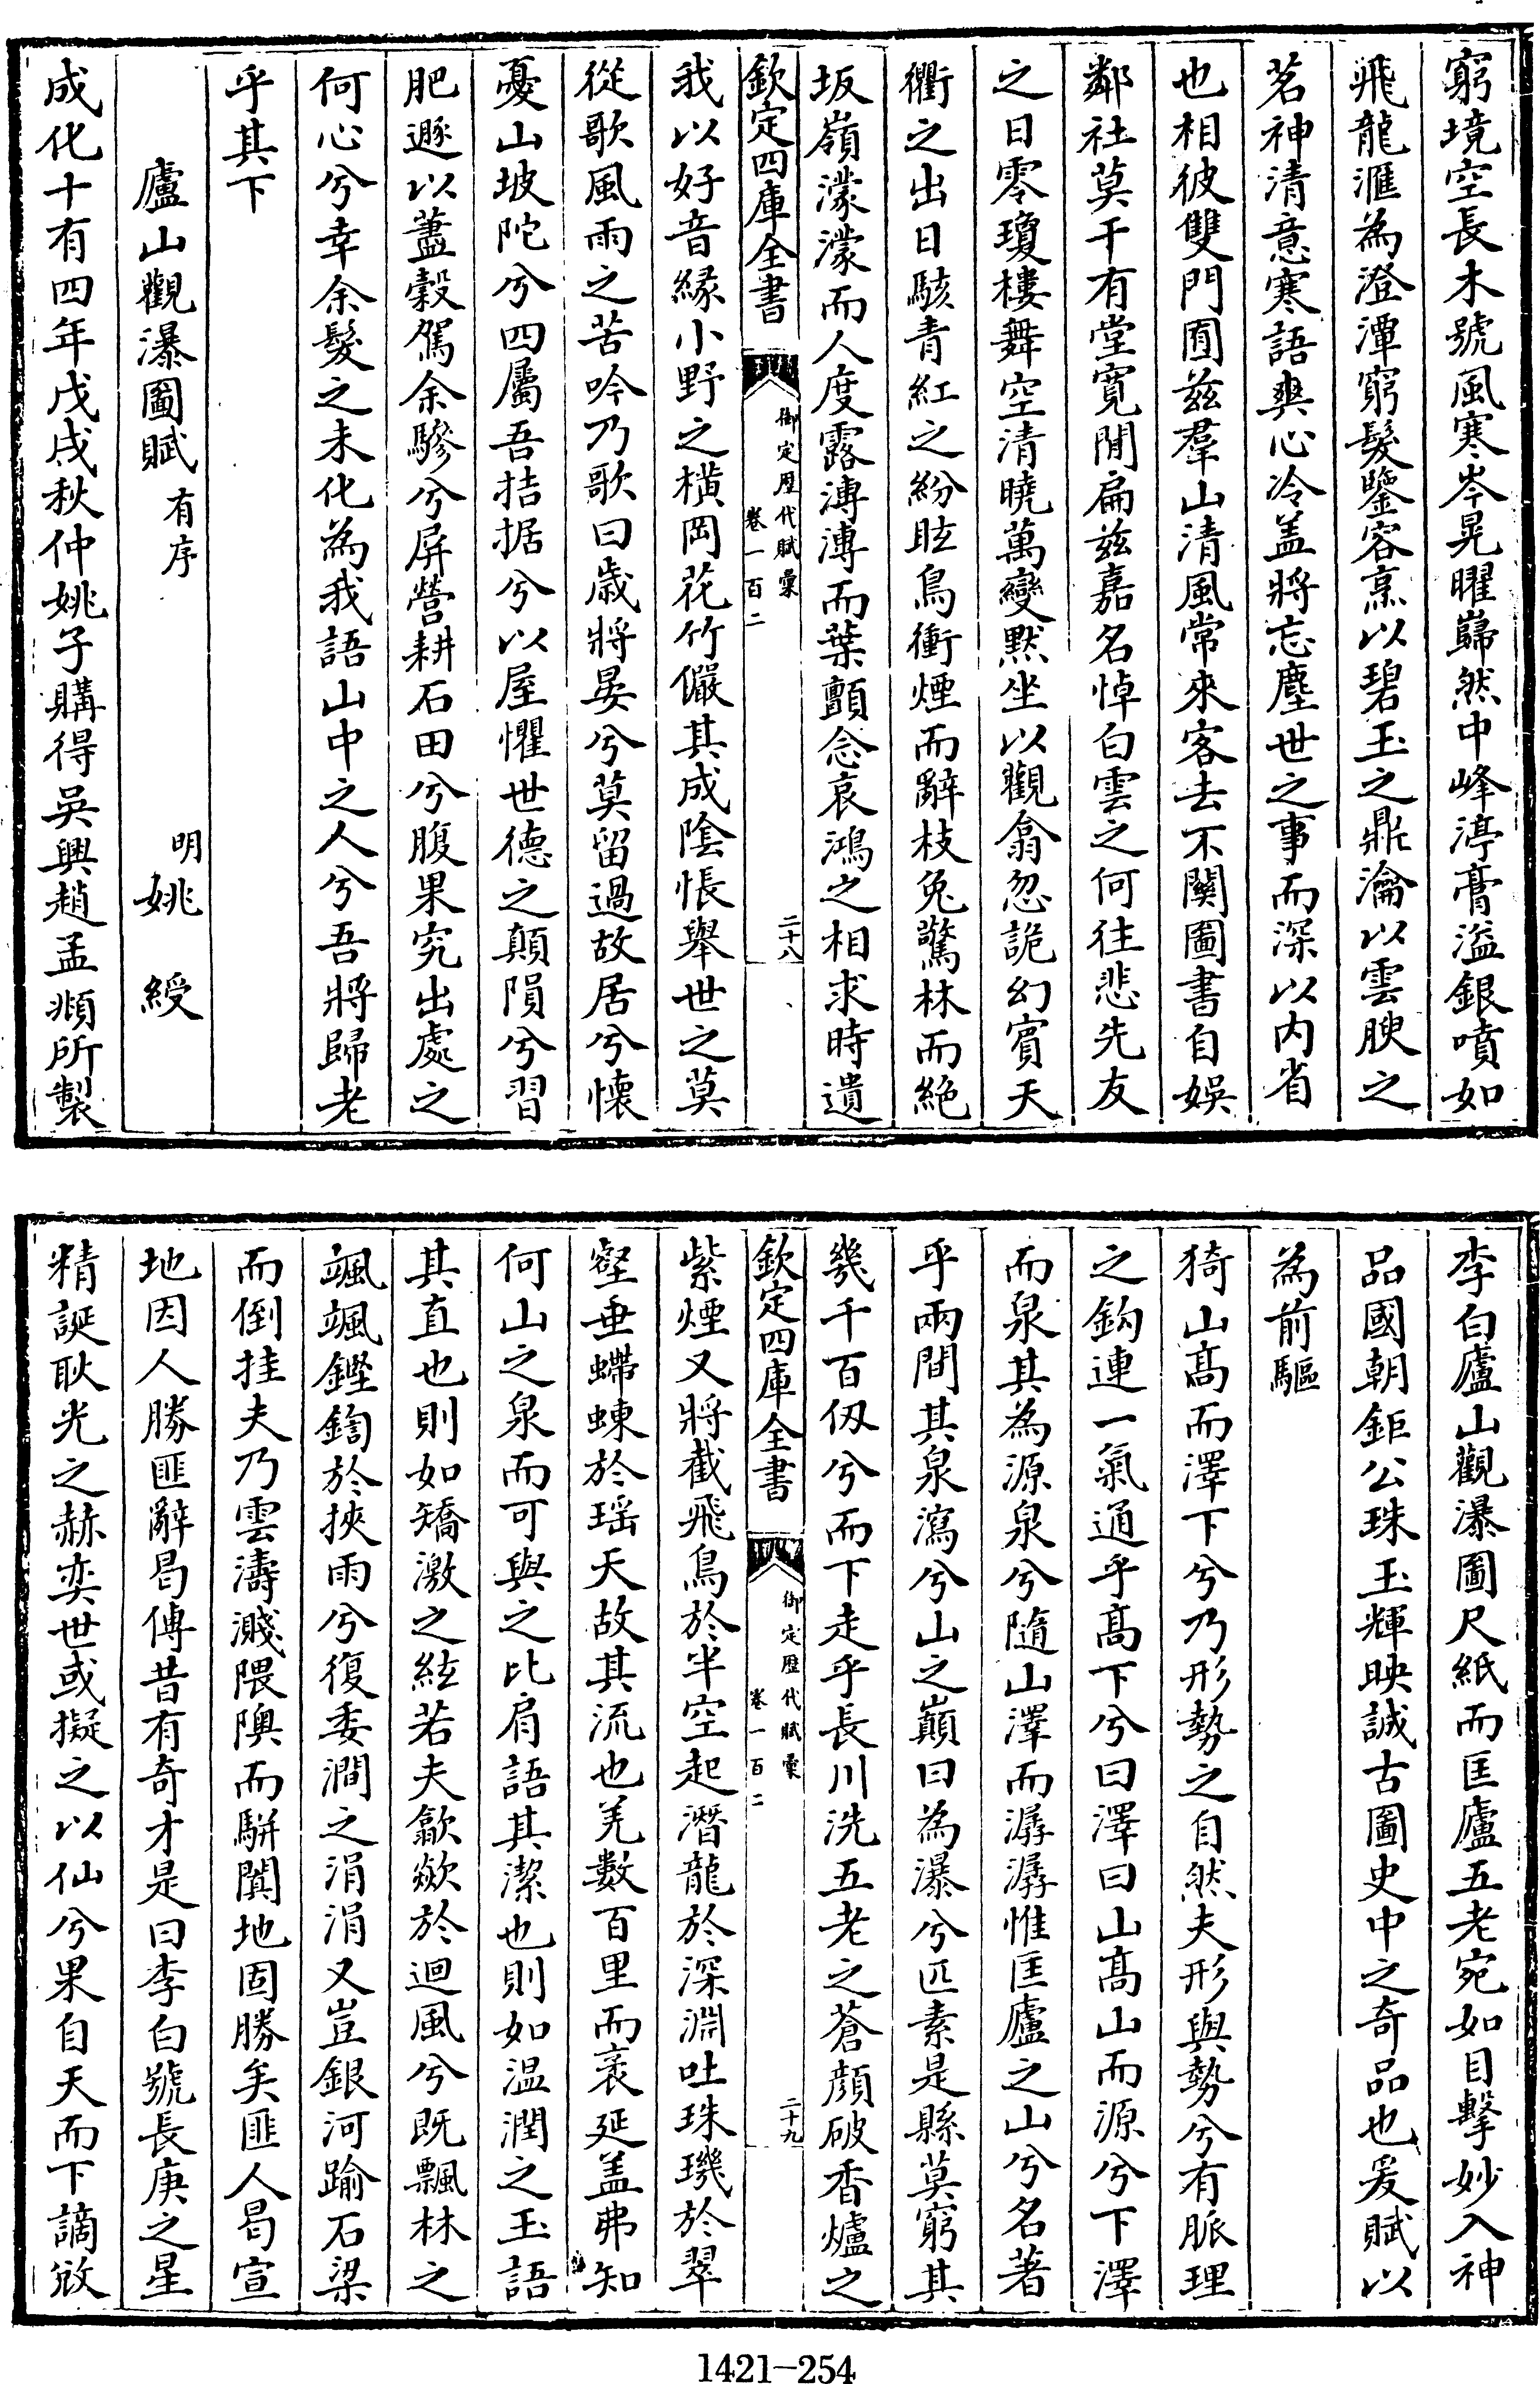 窮境空長木號風寒岑晃曜巋然中峰渟膏溢銀噴如
飛龍滙為澄潭窮髮鑒容烹以碧玉之鼎瀹以雲腴之
茗神清意寒語爽心冷盖將忘塵世之事而深以内省
也相彼雙門囿兹羣山清風常來客去不關圖書自娛
鄰社莫干有堂寬閒扁兹嘉名悼白雲之何往悲先友
之日零瓊樓舞空清曉萬變黙坐以觀翕忽詭幻賓天
衢之出日駭青紅之紛眩鳥衝煙而辭枝兔驚林而絶
坂嶺濛濛而人度露漙漙而葉顫念哀鴻之相求時遺
欽定四庫全書
御定歷代賦彙
卷一百二
二十八
我以好音緣小野之横岡花竹儼其成陰悵舉世之莫
從歌風雨之苦吟乃歌曰歳將晏兮莫留過故居兮懷
憂山坡陀兮四屬吾拮据兮以屋懼世德之顛隕兮習
肥遯以藎穀駕余驂兮屏營耕石田兮腹果究出處之
何心兮幸余髮之未化為我語山中之人兮吾將歸老
乎其下
廬山觀瀑圖賦 有序 明 姚綬
成化十有四年戊戌秋仲姚子購得吳興趙孟頫所製
李白廬山觀瀑圖尺紙而匡廬五老宛如目擊妙入神
品國朝鉅公珠玉輝映誠古圖史中之奇品也爰賦以
為前驅
猗山高而澤下兮乃形勢之自然夫形與勢兮有脈理
之鈎連一氣通乎高下兮曰澤曰山高山而源兮下澤
而泉其為源泉兮隨山澤而潺潺惟匡廬之山兮名著
乎兩間其泉瀉兮山之巔曰為瀑兮匹素是縣莫窮其
幾千百仭兮而下走乎長川洗五老之蒼顔破香爐之
欽定四庫全書
御定歷代賦彙
卷一百二
二十九
紫煙又將截飛鳥於半空起潛龍於深淵吐珠璣於翠
壑垂蝃蝀於瑶天故其流也羌數百里而袤延盖弗知
何山之泉而可與之比肩語其潔也則如温潤之玉語
其直也則如矯激之絃若夫歙歘於迴風兮既飄林之
颯颯鏗鍧於挾雨兮復委澗之涓涓又豈銀河踰石梁
而倒挂夫乃雲濤濺隈隩而駢闐地固勝矣匪人曷宣
地因人勝匪辭曷傳昔有奇才是曰李白號長庚之星
精誕耿光之赫奕世或擬之以仙兮果自天而下謫斂